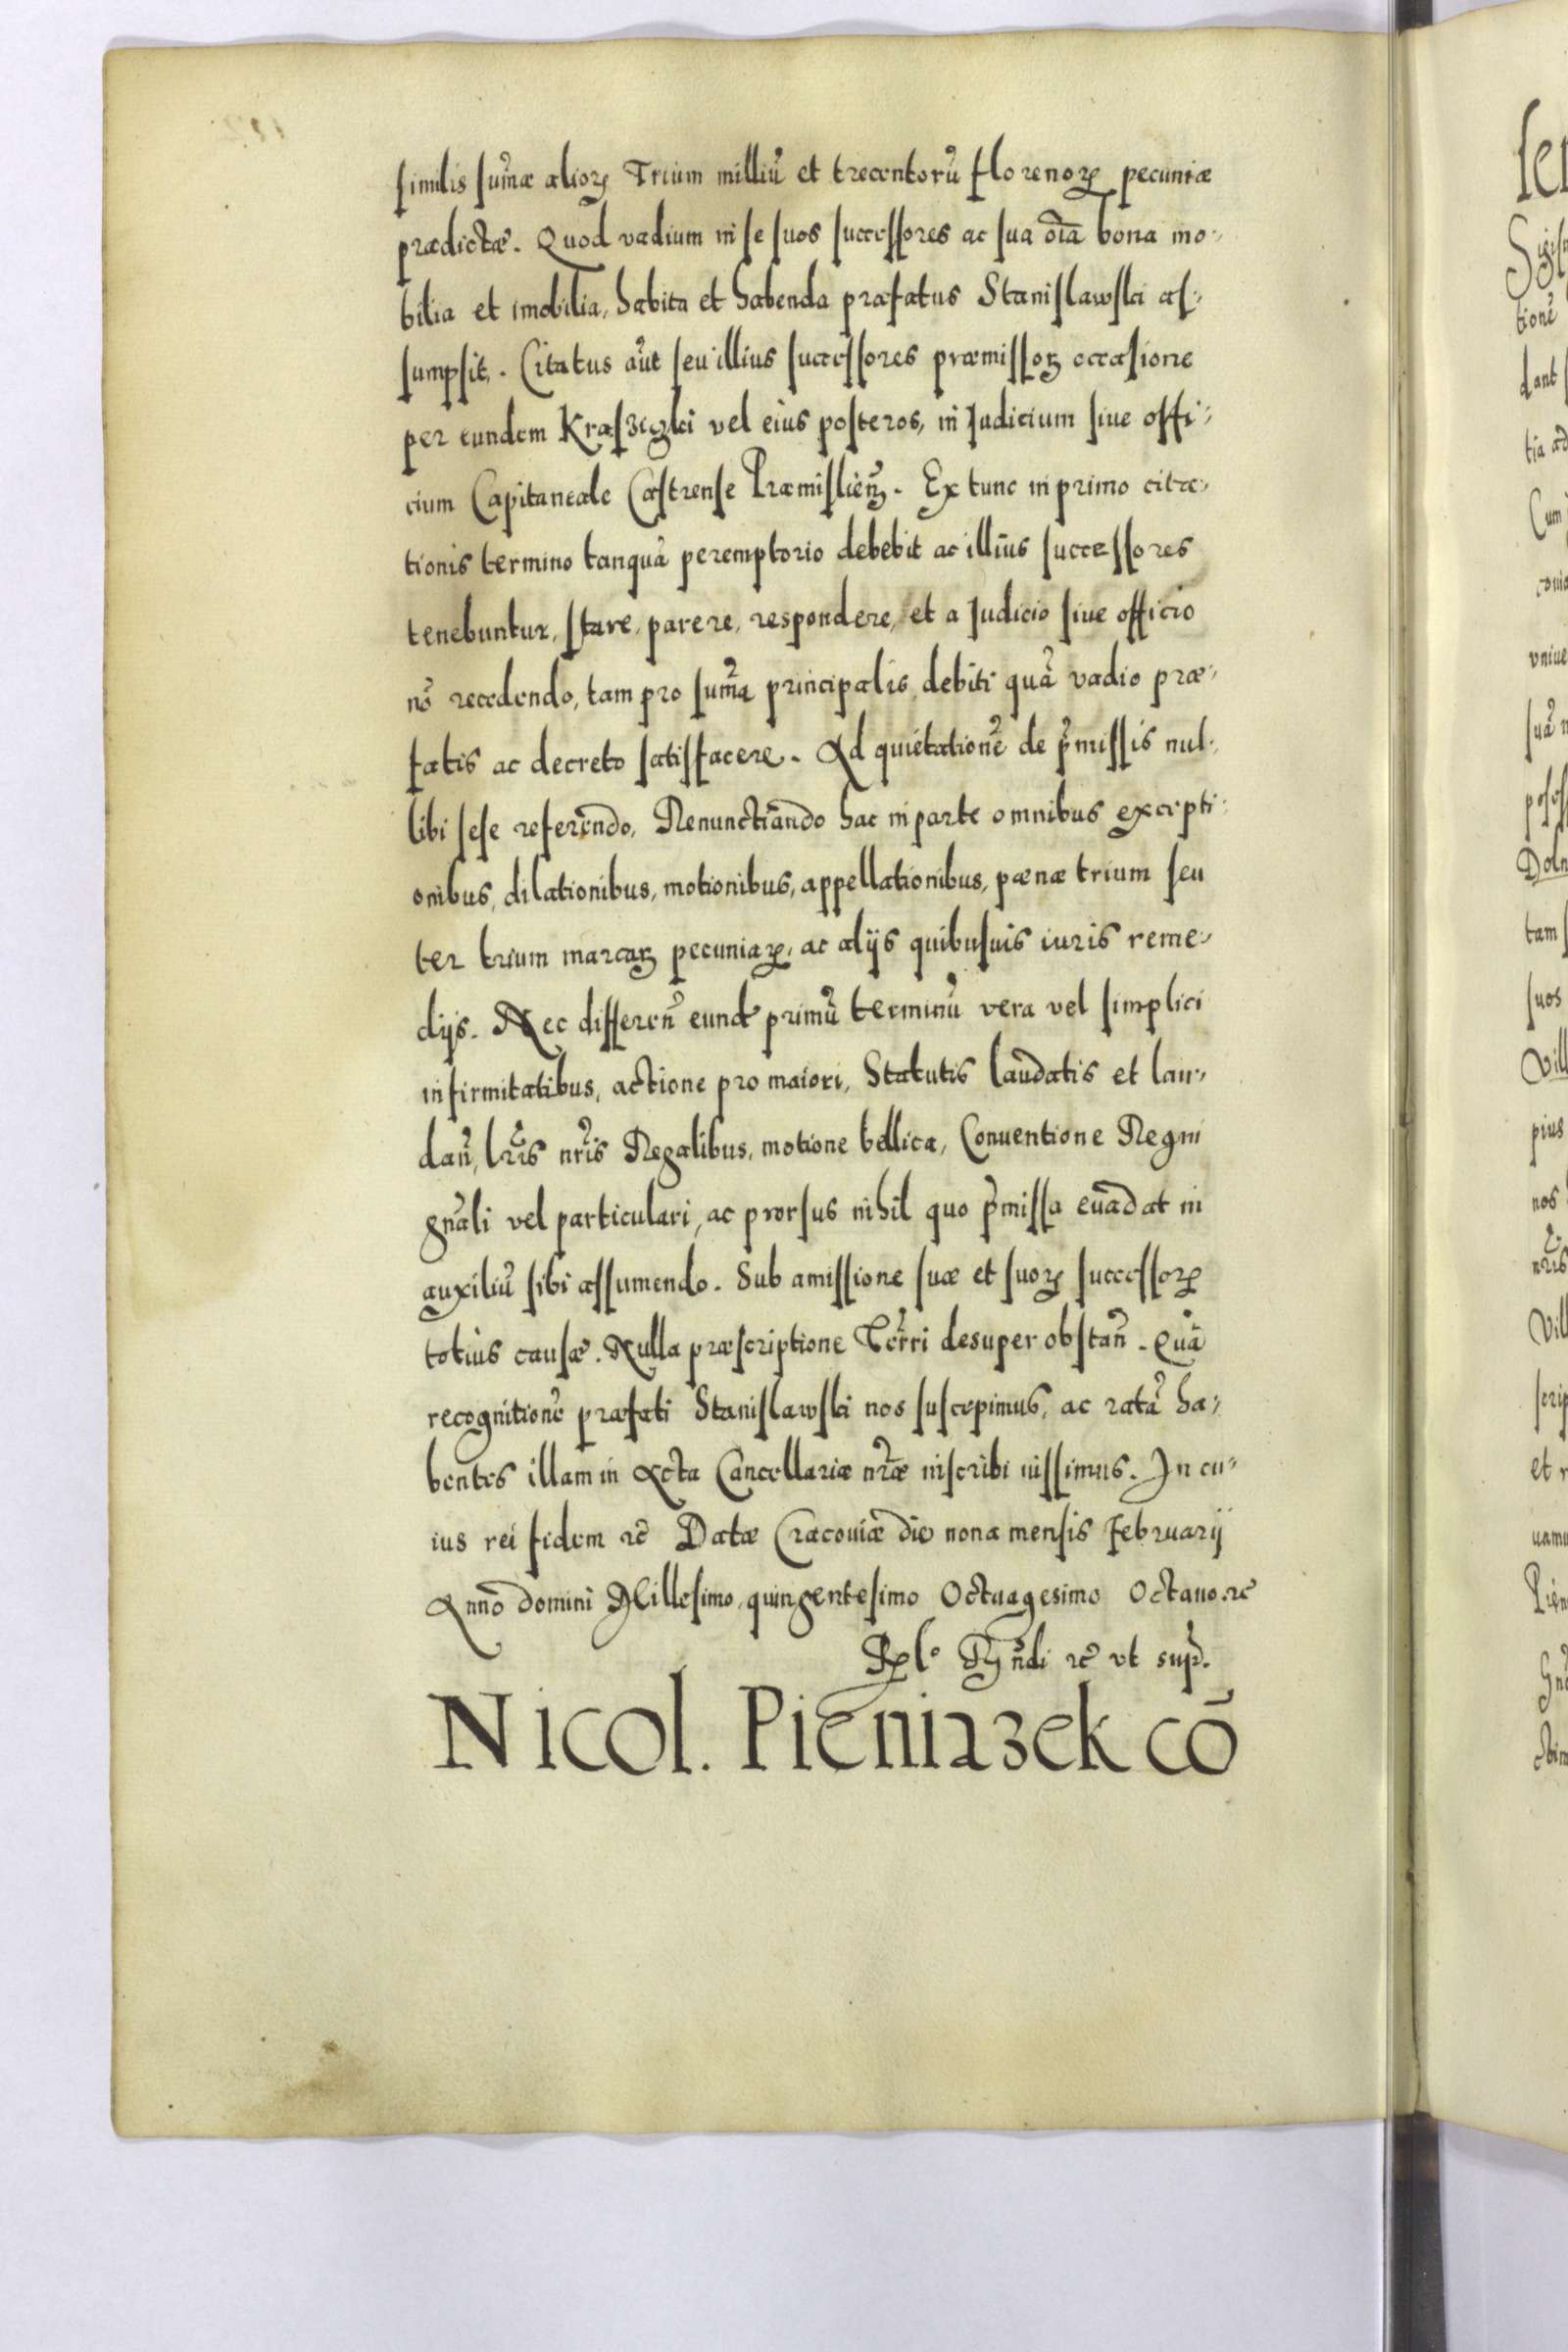 similis sum̃æ alioꝝ Trium milliũ et trecentorũ florenoꝝ pecuniæ
prædictæ. Quod vadium in se suos successores ac sua oĩa bona mo-
bilia et imobilia, habita et habenda præfatus Stanislawski as-
sumpsit. Citatus aũt seu illius successores præmissoꝝ occasione
per eundem vel eius posteros, in Judicium siue offi-
cium Capitaneale Castrense Præmislieñ. Ex tunc in primo cita-
tionis termino tanquã peremptorio debebit ac illius successores
tenebuntur, stare, parere, respondere, et a Judicio siue officio
nõ recedendo, tam pro sum̃a principalis debiti quã vadio præ-
fatis ac decreto satisfacere. Ad quietationẽ de p̃missis nul-
libi sese referendo, Renunctiando hac in parte omnibus excepti-
onibus, dilationibus, motionibus, appellationibus, pænæ trium seu
ter trium marcaꝝ pecuniaꝝ, ac alijs quibusuis iuris reme-
dijs. Nec differeñ eund primũ terminũ vera vel simplici
infirmitatibus, actione pro maiori, Statutis laudatis et lau-
dañ, lr̃is nr̃is Regalibus, motione bellica, Conuentione Regni
gnãli vel particulari, ac prorsus nihil quo p̃missa euadat in
auxiliũ sibi assumendo. Sub amissione suæ et suoꝝ successoꝝ
totius causæ. Nulla præscriptione Terr̃i desuper obstañ. Quã
recognitionẽ præfati Stanislawski nos suscepimus, ac ratã ha-
bentes illam in Acta Cancellariæ nr̃æ inscribi iussimus. In cu-
ius rei fidem ꝛc̃ Datæ Cracouiæ die nona mensis Februarij
Anno domini Millesimo quingentesimo Octuagesimo Octauo ꝛc̃
ꝛc̃ vt sup̃.
Nicol. Pieniazek cõ